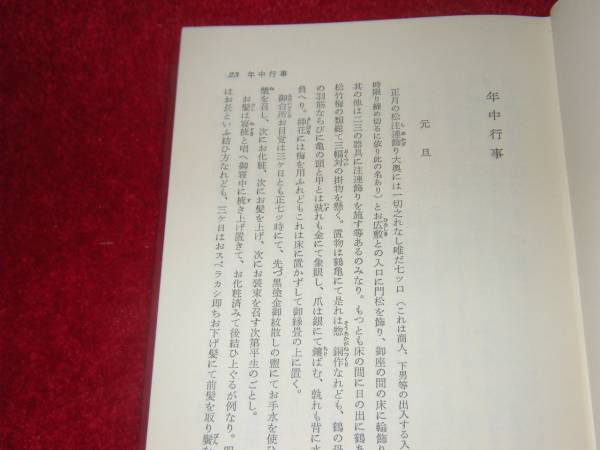 23 年中行事
年中行事
元旦
正月の松注連飾り大奥には一切之れなし唯だ七ツ口(これは商人、下男等の出入する入
時限り締め切るに依り此の名あり)とお広敷との入口に門松を飾り、御座の間の床に輪飾り
其の他は二三の器具に注連飾りを施す等あるのみなり。もつとも床の間に日の出に鶴あ
松竹梅の類総て三幅対の掛物を懸く。置物は鶴亀にて是れは惣銅作なれども、鶴の母
の羽筋ならびに亀の頭と甲とは孰れも金にて象眼し、爪は銀にて鏤ばむ、孰れも背に水
負へり。挿花には梅を用ふれどもこれは床に置かずして御縁畳の上に置く。
御台所お目覚は三ケ日とも正七ツ時にて、先づ黒塗金御紋散しの盥にてお手水を使ひ
漿を召し、次にお化粧、次にお髪を上げ、次にお装束を召す次第平生のごとし。
お髪は寝梳と唱へ御寝中に梳き上げ置きて、お化粧済みて後結ひ上ぐるが例なり。四
はお長といふ結ひ方なれども、三ケ日はおスベラカシ即ちお下げ髪にて前髪を取り鬢な